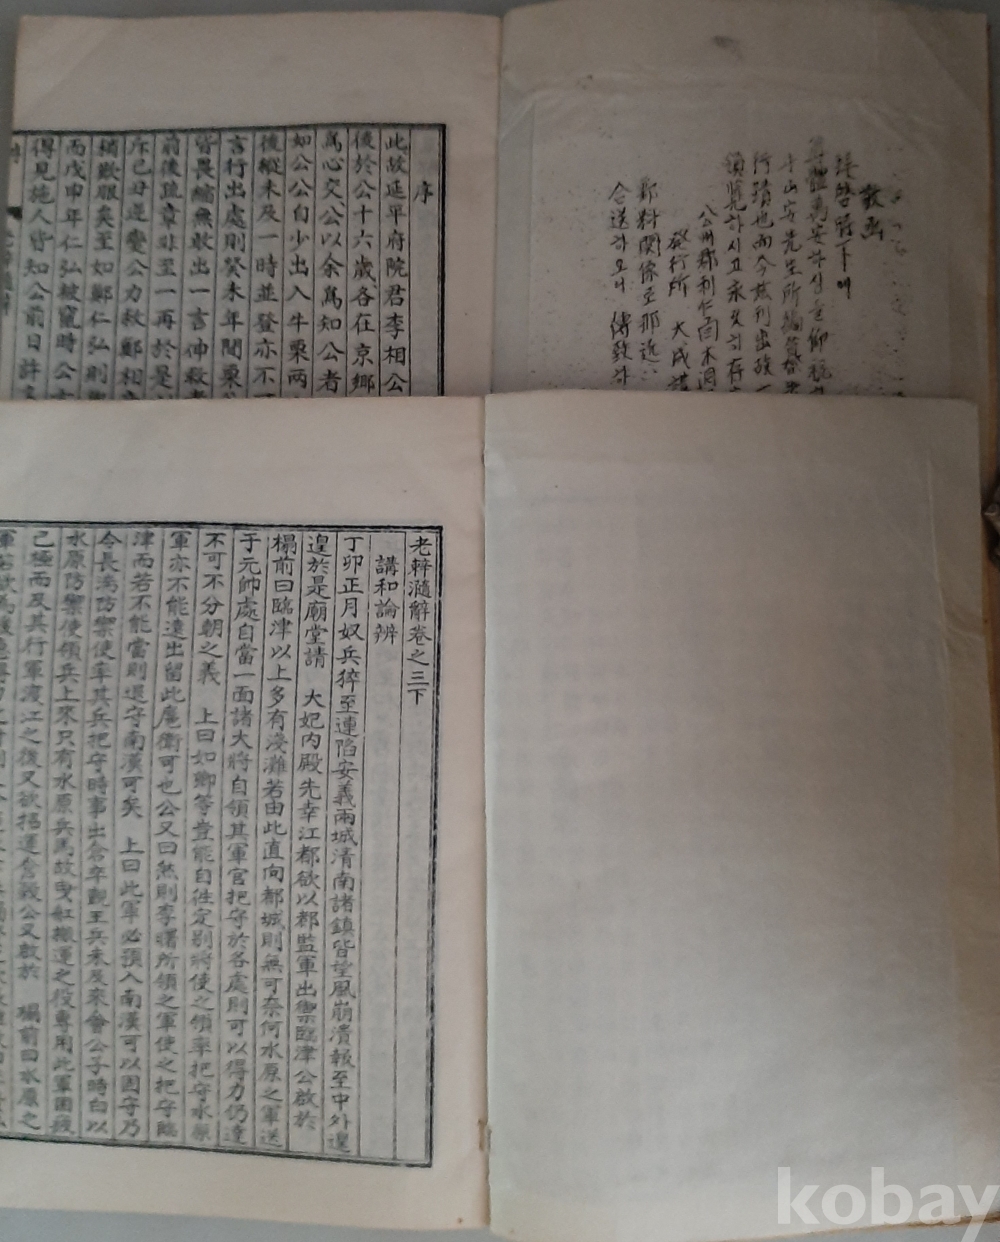 序
此故延平府院君李相公
後於公十六歲各在京鄉
爲心交公以余爲知公者
如公公自少出入牛栗兩
後縱未及一時並登亦不
言行出處則癸未年間栗
皆畏縮無敢出一言伸救
前後疏章非至一再於是
斥己丑逆變公力救鄭相
獨歎服矣至如鄭仁弘則
丙戊申年仁弘被竄時公
得見施人皆知公前日許
敬函
謹啓時下에
尊體萬安하심을仰祝
牛山安先生所編
行蹟也而今玆刊出
領覽하시고永久히存
公州郡利仁面木洞
發行所 大成
郵料關係로
仝送하오니 傳致하
老榦瀡辭卷之三下
講和論辨
丁卯正月奴兵猝至連陷安義兩城淸南諸鎭皆望風崩潰報至中外遑
遑於是廟堂請 大妃內殿先幸江都欲以都監軍出禦臨津公啟於
榻前曰臨津以上多有淺灘若由此直向都城則無可奈何水原之軍送
于元帥處自當一面諸大將自領其軍官把守於各處則可以得力仍達
不可不分朝之義 上曰如卿等豈能自徃定別將使之領率把守水原
軍亦不能遠出留此扈衛可也公又曰然則李曙所領之軍使之把守臨
津而若不能當則退守南漢可矣 上曰此軍必預入南漢可以固守乃
令長湍防禦使率其兵把守時事出倉卒觀王兵未及來會公子時白以
水原防禦使領兵上來只有水原兵馬故曳船搬運之役專用此軍困疲
已極而及其行軍渡江之後又欲招運倉穀公又啟於 榻前曰水原之
kobay